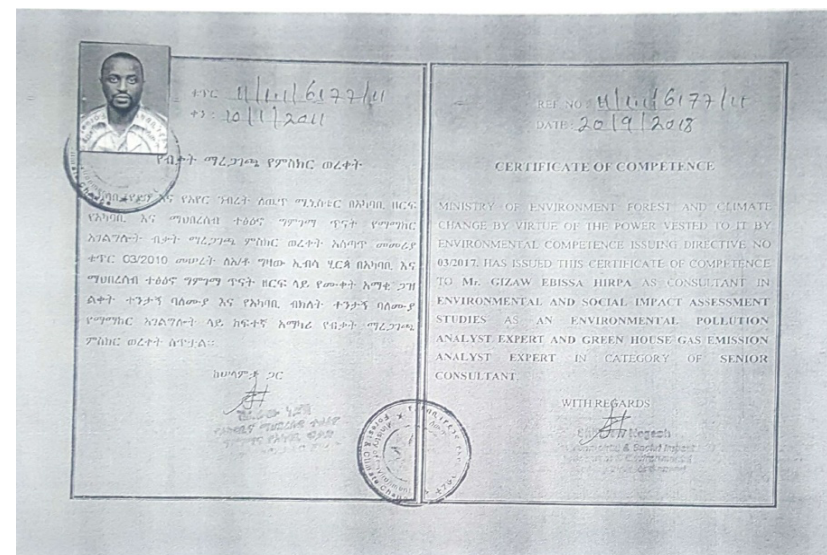 ቁጥር 11/1.1.1/6177/11
ቀን: 10/1/2011
የብቃት ማረጋገጫ የምስክር ወረቀት
የአካባቢ የደን እና የአየር ንብረት ለውጥ ሚኒስቴር በአካባቢ ዘርፍ
የአካባቢ እና ማህበረሰብ ተፅዕኖ ግምገማ ጥናት የማማከር
አገልግሎት ብቃት ማረጋገጫ ምስክር ወረቀት አሰጣጥ መመሪያ
ቁጥር 03/2010 መሠረት ለአቶ ግዛው ኢብሳ ሂርጳ በአካባቢ እና
ማህበረሰብ ተፅዕኖ ግምገማ ጥናት ዘርፍ ላይ የሙቀት አማቂ ጋዝ
ልቀት ተንታኝ ባለሙያ እና የአካባቢ ብክለት ተንታኝ ባለሙያ
የማማከር አገልግሎት ላይ ከፍተኛ አማካሪ የብቃት ማረጋገጫ
ምስክር ወረቀት ሰጥታል።
ከሠላምታ ጋር
REF NO: 11/1.1.1/6177/11
DATE: 20/9/2018
CERTIFICATE OF COMPETENCE
MINISTRY OF ENVIRONMENT FOREST AND CLIMATE
CHANGE BY VIRTUE OF THE POWER VESTED TO IT BY
ENVIRONMENTAL COMPETENCE ISSUING DIRECTIVE NO
03/2017. HAS ISSUED THIS CERTIFICATE OF COMPETENCE
TO Mr. GIZAW EBISSA HIRPA AS CONSULTANT IN
ENVIRONMENTAL AND SOCIAL IMPACT ASSESSMENT
STUDIES AS AN ENVIRONMENTAL POLLUTION
ANALYST EXPERT AND GREEN HOUSE GAS EMISSION
ANALYST EXPERT IN CATEGORY OF SENIOR
CONSULTANT
WITH REGARDS
Negash
Environmental & Social Impact